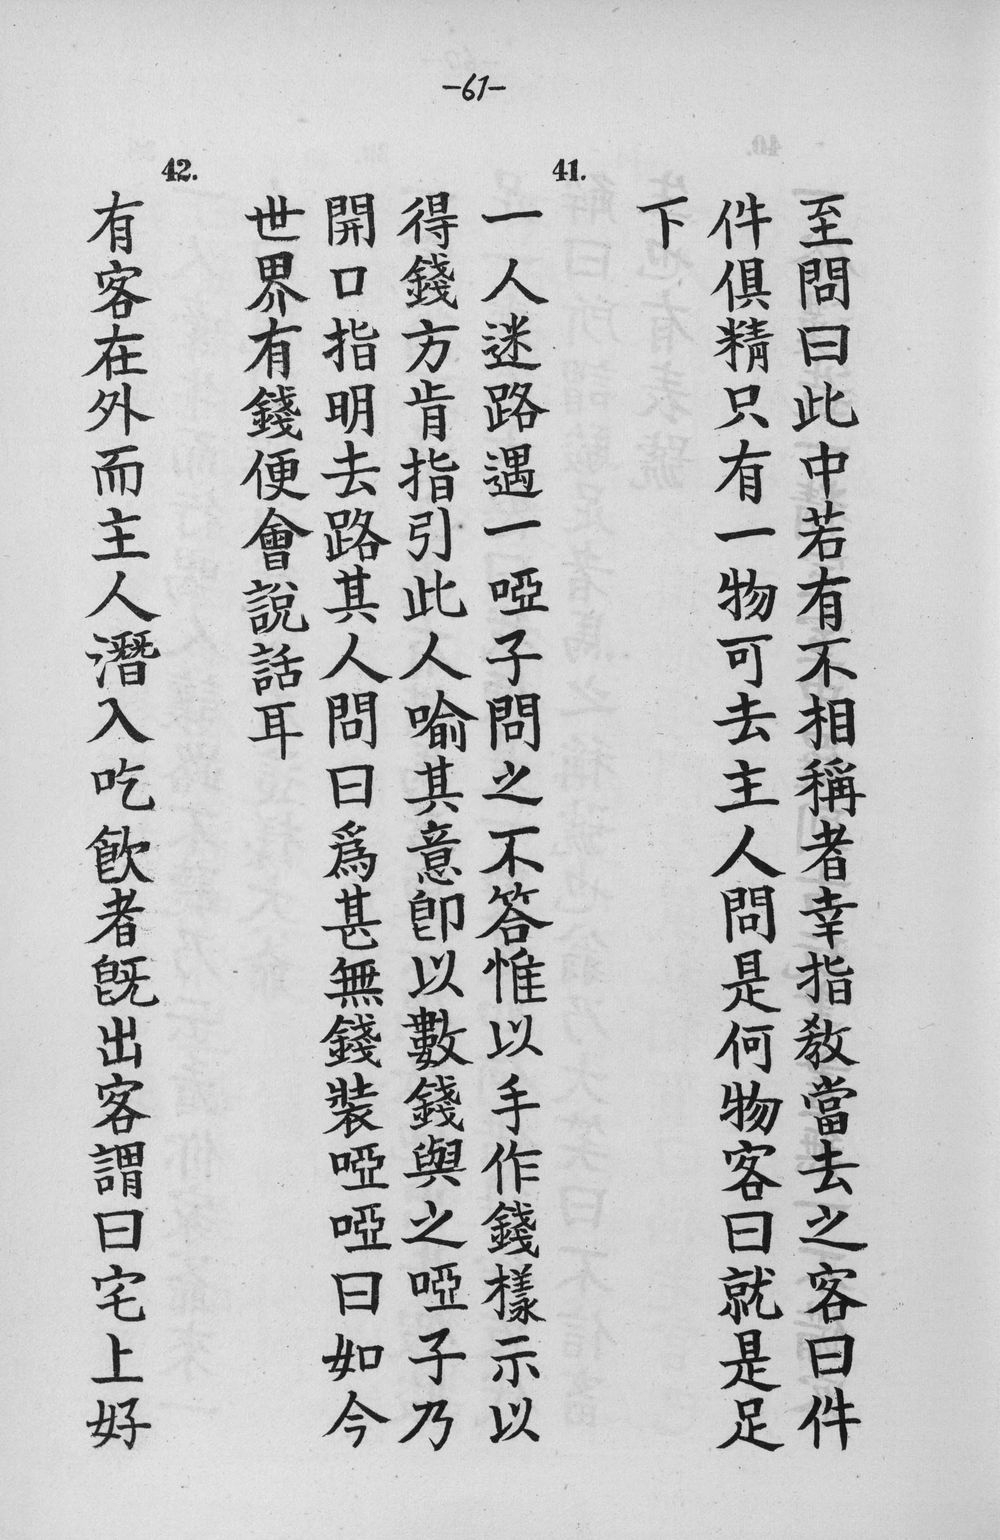 -61-
至問曰此中若有不相稱者幸指教當去之客曰件
件俱精只有一物可去主人問是何物客曰就是足
下
41.
一人迷路遇一啞子問之不答惟以手作錢樣示以
得錢方肯指引此人喻其意卽以數錢與之啞子乃
開口指明去路其人問曰爲甚無錢裝啞啞曰如今
世界有錢便會說話耳
42.
有客在外而主人潛入吃飮者旣出客謂曰宅上好